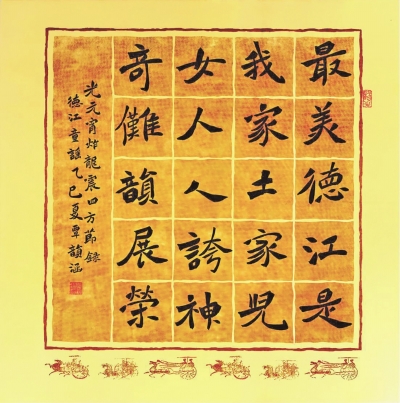 最美德江是
我家土家児
女人人誇神
奇儺韻展榮
光元宵炸龍震四方節錄
德江童謠乙巳夏覃韻涵